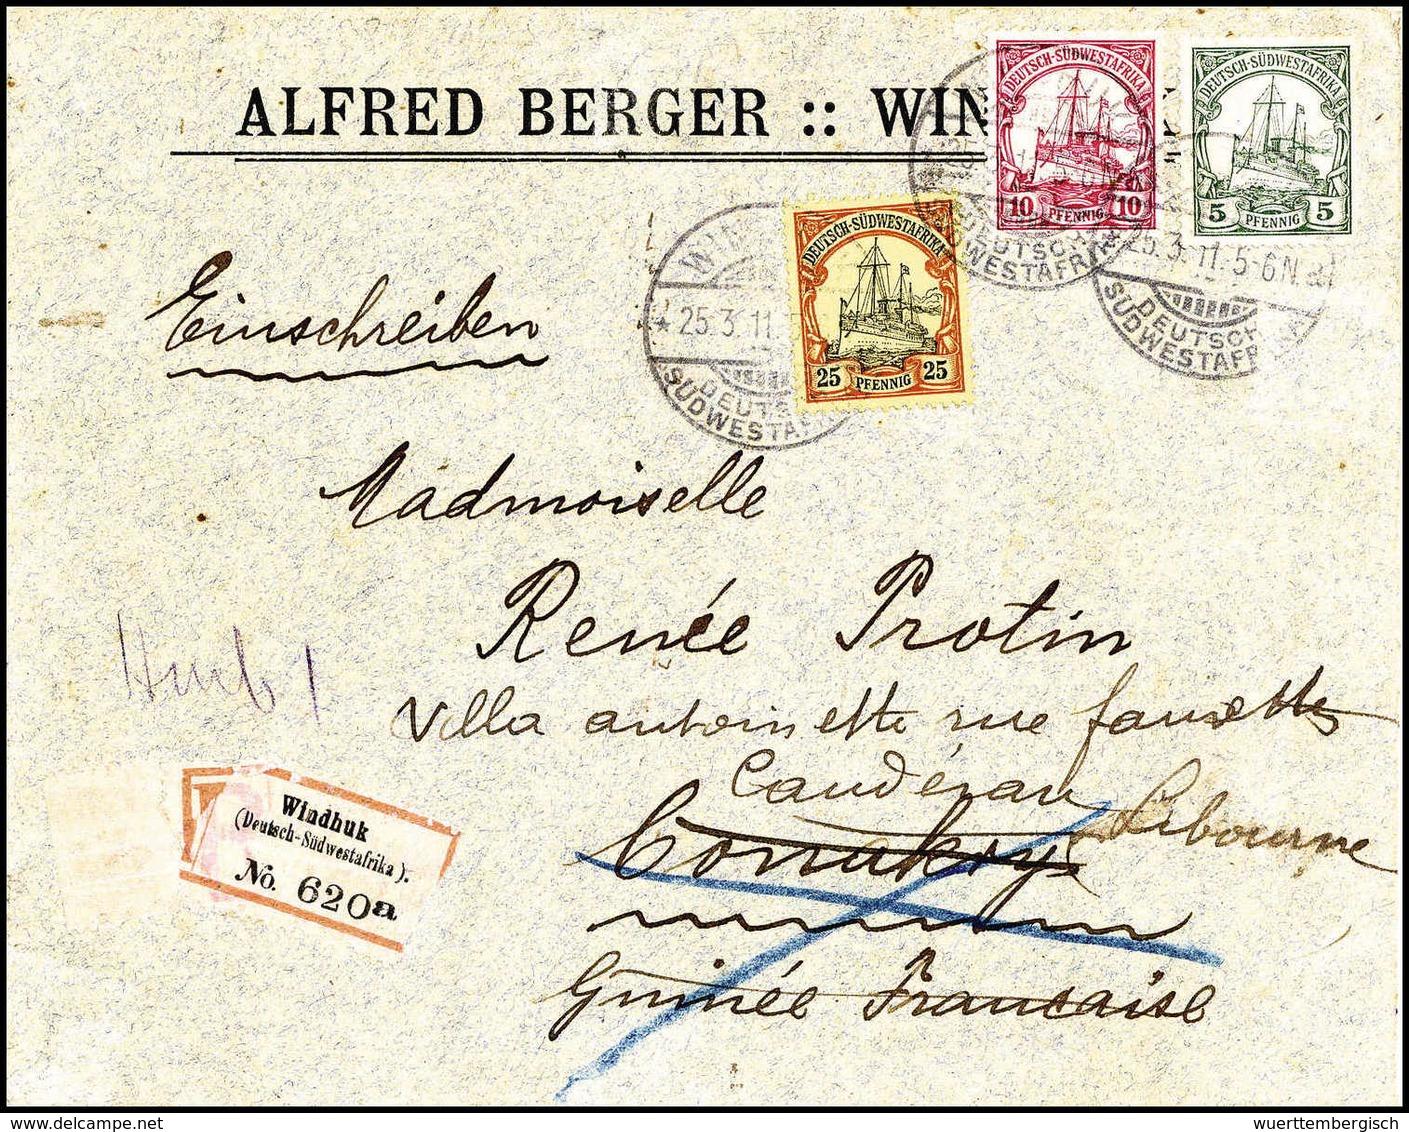 ALFRED BERGER :: WIN
DEUTSCH-SÜDWESTAFRIKA
10 PFENNIG 10
DEUTSCH-SÜDWESTAFRIKA
5 PFENNIG 5
DEUTSCH-SÜDWESTAFRIKA
25 PFENNIG 25
* 25.3.11.
DEUTSCH
SÜDWESTAFRIKA
DEUTSCH
SÜDWESTAFRIKA
25.3.11.5-6N.
DEUTSCH
SÜDWESTAFRIKA
Einschreiben
Madmoiselle
Renée Protin
Villa antoinette rue
Caudéran Libourne
Conakry
Guinée Francaise
Windhuk
(Deutsch-Südwestafrika).
No. 620a
wuerttembergisch